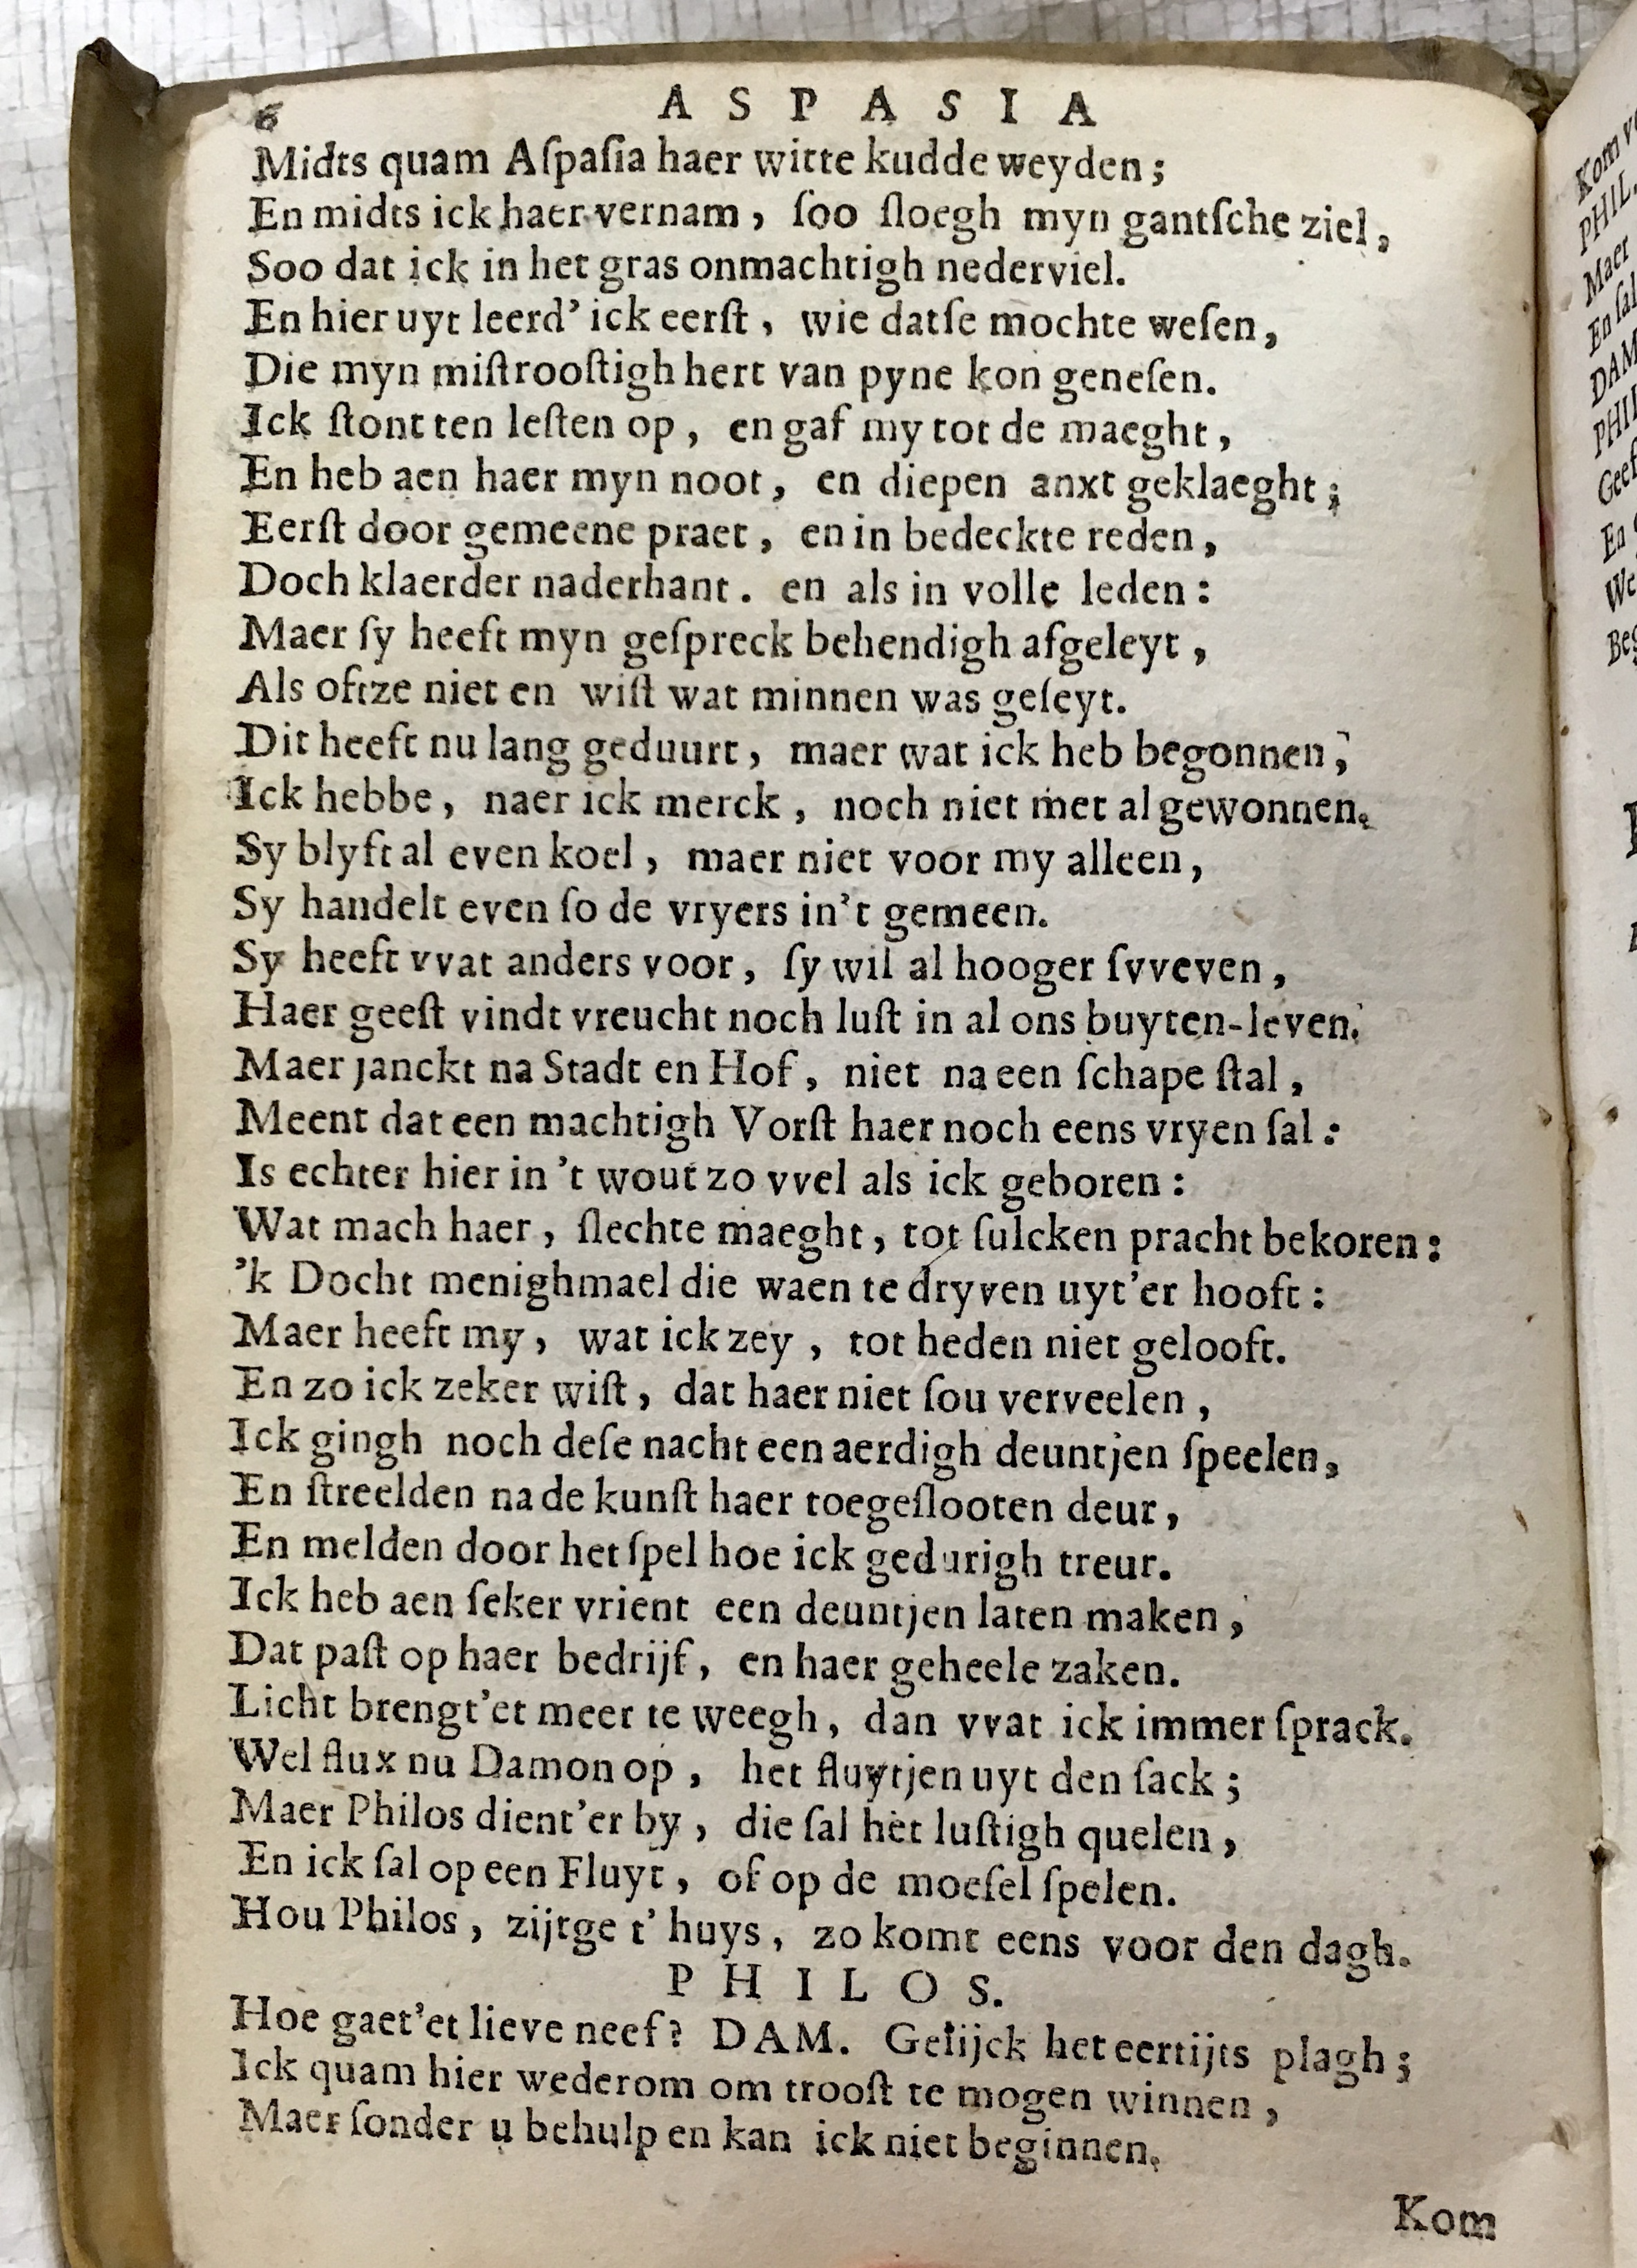 6 ASPASIA
Midts quam Aſpaſia haer witte kudde weyden;
En midts ick haer vernam, ſoo ſloegh myn gantſche ziel,
Soo dat ick in het gras onmachtigh nederviel.
En hier uyt leerd' ick eerſt, wie datſe mochte weſen,
Die myn miſtrooſtigh hert van pyne kon geneſen.
Ick ſtont ten leſten op, en gaf my tot de maeght,
En heb aen haer myn noot, en diepen anxt geklaeght;
Eerſt door gemeene praet, en in bedeckte reden,
Doch klaerder naderhant. en als in volle leden:
Maer ſy heeft myn geſpreck behendigh afgeleyt,
Als oftze niet en wiſt wat minnen was geſeyt.
Dit heeft nu lang geduurt, maer wat ick heb begonnen,
Ick hebbe, naer ick merck, noch niet met al gewonnen.
Sy blyft al even koel, maer niet voor my alleen,
Sy handelt even ſo de vryers in't gemeen.
Sy heeft vvat anders voor, ſy wil al hooger ſvveven,
Haer geeſt vindt vreucht noch luſt in al ons buyten-leven.
Maer janckt na Stadt en Hof, niet na een ſchape ſtal,
Meent dat een machtigh Vorſt haer noch eens vryen ſal:
Is echter hier in 't wout zo vvel als ick geboren:
Wat mach haer, ſlechte maeght, tot ſulcken pracht bekoren:
'k Docht menighmael die waen te dryven uyt'er hooft:
Maer heeft my, wat ick zey, tot heden niet gelooft.
En zo ick zeker wiſt, dat haer niet ſou verveelen,
Ick gingh noch deſe nacht een aerdigh deuntjen ſpeelen,
En ſtreelden na de kunſt haer toegeſlooten deur,
En melden door het ſpel hoe ick gedurigh treur.
Ick heb aen ſeker vrient een deuntjen laten maken,
Dat paſt op haer bedrijf, en haer geheele zaken.
Licht brengt'et meer te weegh, dan vvat ick immer ſprack.
Wel flux nu Damon op, het fluytjen uyt den ſack;
Maer Philos dient'er by, die ſal het luſtigh quelen,
En ick ſal op een Fluyt, of op de moeſel ſpelen.
Hou Philos, zijtge t' huys, zo komt eens voor den dagh.
PHILOS.
Hoe gaet'et lieve neef? DAM. Gelijck het eertijts plagh;
Ick quam hier wederom om trooſt te mogen winnen,
Maer ſonder u behulp en kan ick niet beginnen.
Kom
PHIL.
Maer
DAM